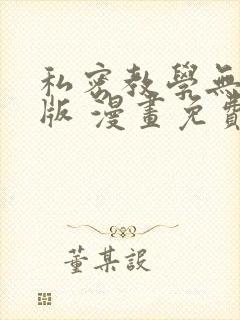 私密教學無
版 漫畫免費
董某設